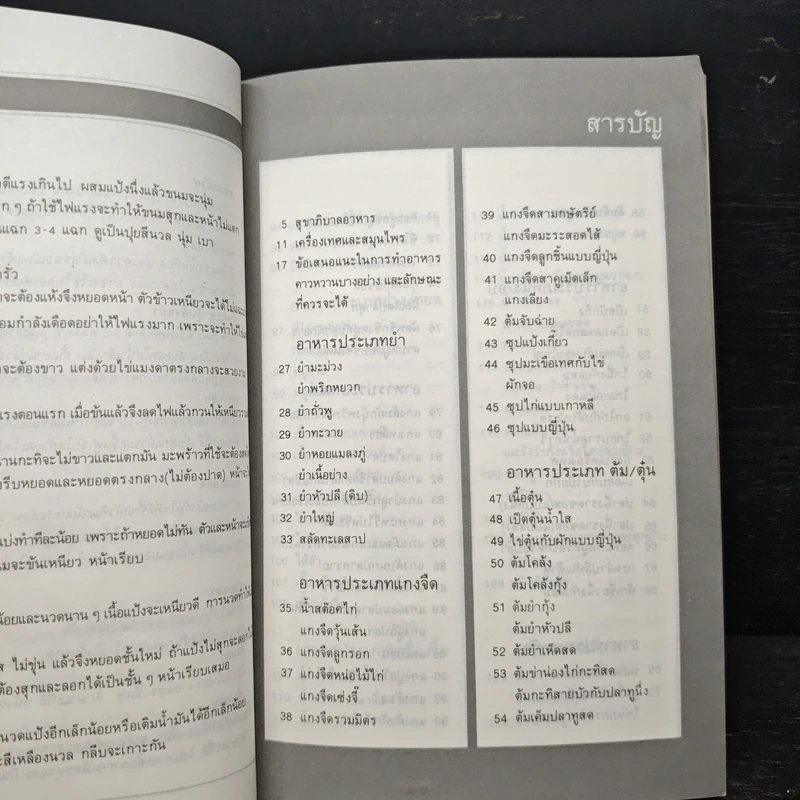 ตีแรงเกินไป ผสมแป้งนึ่งแล้วขนมจะนุ่ม
ก ๆ ถ้าใช้ไฟแรงจะทำให้ขนมสุกและหน้าไม่แตก
แฉก 3-4 แฉก ดูเป็นปุยสีนวล นุ่ม เบา
รั่ว
จะต้องแห้งจึงหยอดหน้า ตัวข้าวเหนียวจะได้ไม่
อมกำลังเดือดอย่าให้ไฟแรงมาก เพราะจะทำให้
จะต้องขาว แต่งด้วยไข่แมงดาตรงกลางจะสวยงาม
แรงตอนแรก เมื่อข้นแล้วจึงลดไฟแล้วกวนให้เหนียว
นานกะทิจะไม่ขาวและแตกมัน มะพร้าวที่ใช้จะต้อง
รีบหยอดและหยอดตรงกลาง(ไม่ต้องปาด) หน้าจะ
แบ่งทำทีละน้อย เพราะถ้าหยอดไม่ทัน ตัวและหน้าจะ
มจะข้นเหนียว หน้าเรียบ
น้อยและนวดนาน ๆ เนื้อแป้งจะเหนียวดี การนวดทำให้
ส ไม่ขุ่น แล้วจึงหยอดชั้นใหม่ ถ้าแป้งไม่สุกจะลอก
ต้องสุกและลอกได้เป็นชั้น ๆ หน้าเรียบเสมอ
นวดแป้งอีกเล็กน้อยหรือเติมน้ำมันได้อีกเล็กน้อย
ะสีเหลืองนวล กลีบจะเกาะกัน
สารบัญ
5 สุขาภิบาลอาหาร
11 เครื่องเทศและสมุนไพร
17 ข้อเสนอแนะในการทำอาหาร
คาวหวานบางอย่าง และลักษณะ
ที่ควรจะได้
อาหารประเภทยำ
27 ยำมะม่วง
ยำพริกหยวก
28 ยำถั่วพู
29 ยำทะวาย
30 ยำหอยแมลงภู่
ยำเนื้อย่าง
31 ยำหัวปลี (ดิบ)
32 ยำใหญ่
33 สลัดทะเลสาป
อาหารประเภทแกงจืด
35 น้ำสต๊อคไก่
แกงจืดวุ้นเส้น
36 แกงจืดลูกรอก
37 แกงจืดหน่อไม้ไก่
แกงจืดเซ่งจี๊
38 แกงจืดรวมมิตร
39 แกงจืดสามกษัตริย์
แกงจืดมะระสอดไส้
40 แกงจืดลูกชิ้นแบบญี่ปุ่น
41 แกงจืดสาคูเม็ดเล็ก
แกงเลียง
42 ต้มจับฉ่าย
43 ซุปแป้งเกี๊ยว
44 ซุปมะเขือเทศกับไข่
ผักจอ
45 ซุปไก่แบบเกาหลี
46 ซุปแบบญี่ปุ่น
อาหารประเภท ต้ม/ตุ๋น
47 เนื้อตุ๋น
48 เป็ดตุ๋นน้ำใส
49 ไข่ตุ๋นกับผักแบบญี่ปุ่น
50 ต้มโคล้ง
ต้มโคล้งกุ้ง
51 ต้มยำกุ้ง
ต้มยำหัวปลี
52 ต้มยำเห็ดสด
53 ต้มข่าน่องไก่กะทิสด
ต้มกะทิสายบัวกับปลาทูนึ่ง
54 ต้มเค็มปลาทูสด